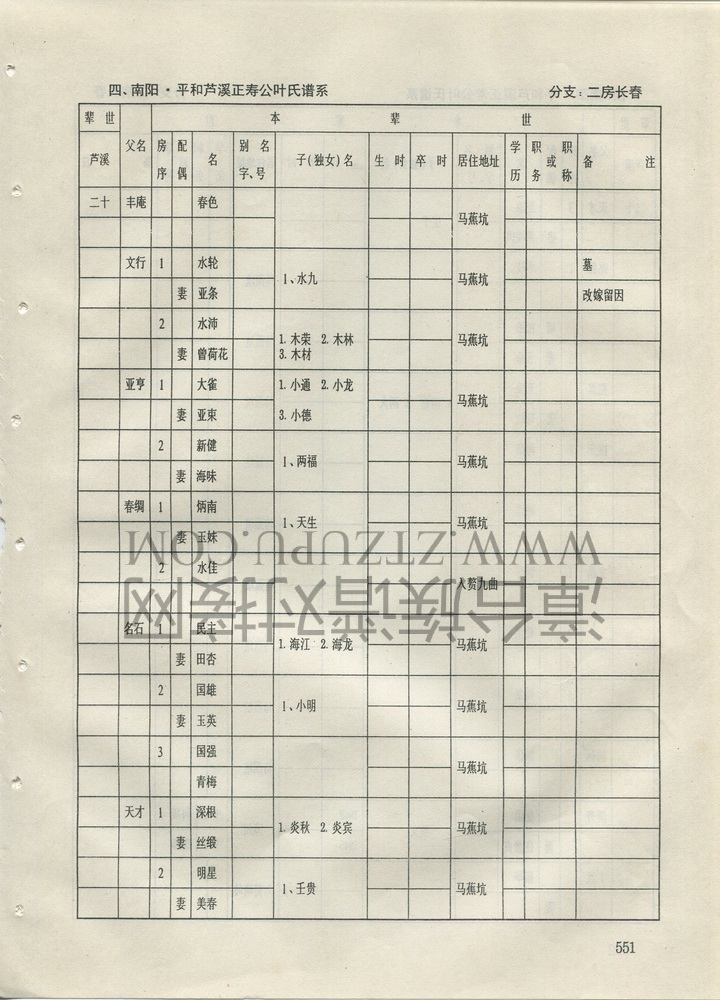 四、南阳·平和芦溪正寿公叶氏谱系 分支：二房长春
辈世 父名 本辈世
芦溪 房序 配偶 名 别名字、号 子(独女)名 生时 卒时 居住地址 学历 职或职务称 备注
二十 丰庵 春色 马蕉坑
文行 1 水轮 1、水九 马蕉坑 墓
妻 亚条 改嫁留因
2 水沛 1.木荣 2.木林 马蕉坑
妻 曾荷花 3.木材
亚亨 1 大雀 1.小通 2.小龙 马蕉坑
妻 亚束 3.小德
2 新健 1、两福 马蕉坑
妻 海味
春绸 1 炳南 1、天生 马蕉坑
妻 玉妹
2 水佳 入赘九曲
名石 1 民主 1.海江 2.海龙 马蕉坑
妻 田杏
2 国雄 1、小明 马蕉坑
妻 玉英
3 国强 马蕉坑
青梅
天才 1 深根 1.炎秋 2.炎宾 马蕉坑
妻 丝缎
2 明星 1、壬贵 马蕉坑
妻 美春
551
WWW.ZTZUPU.COM
漳台族谱对接网